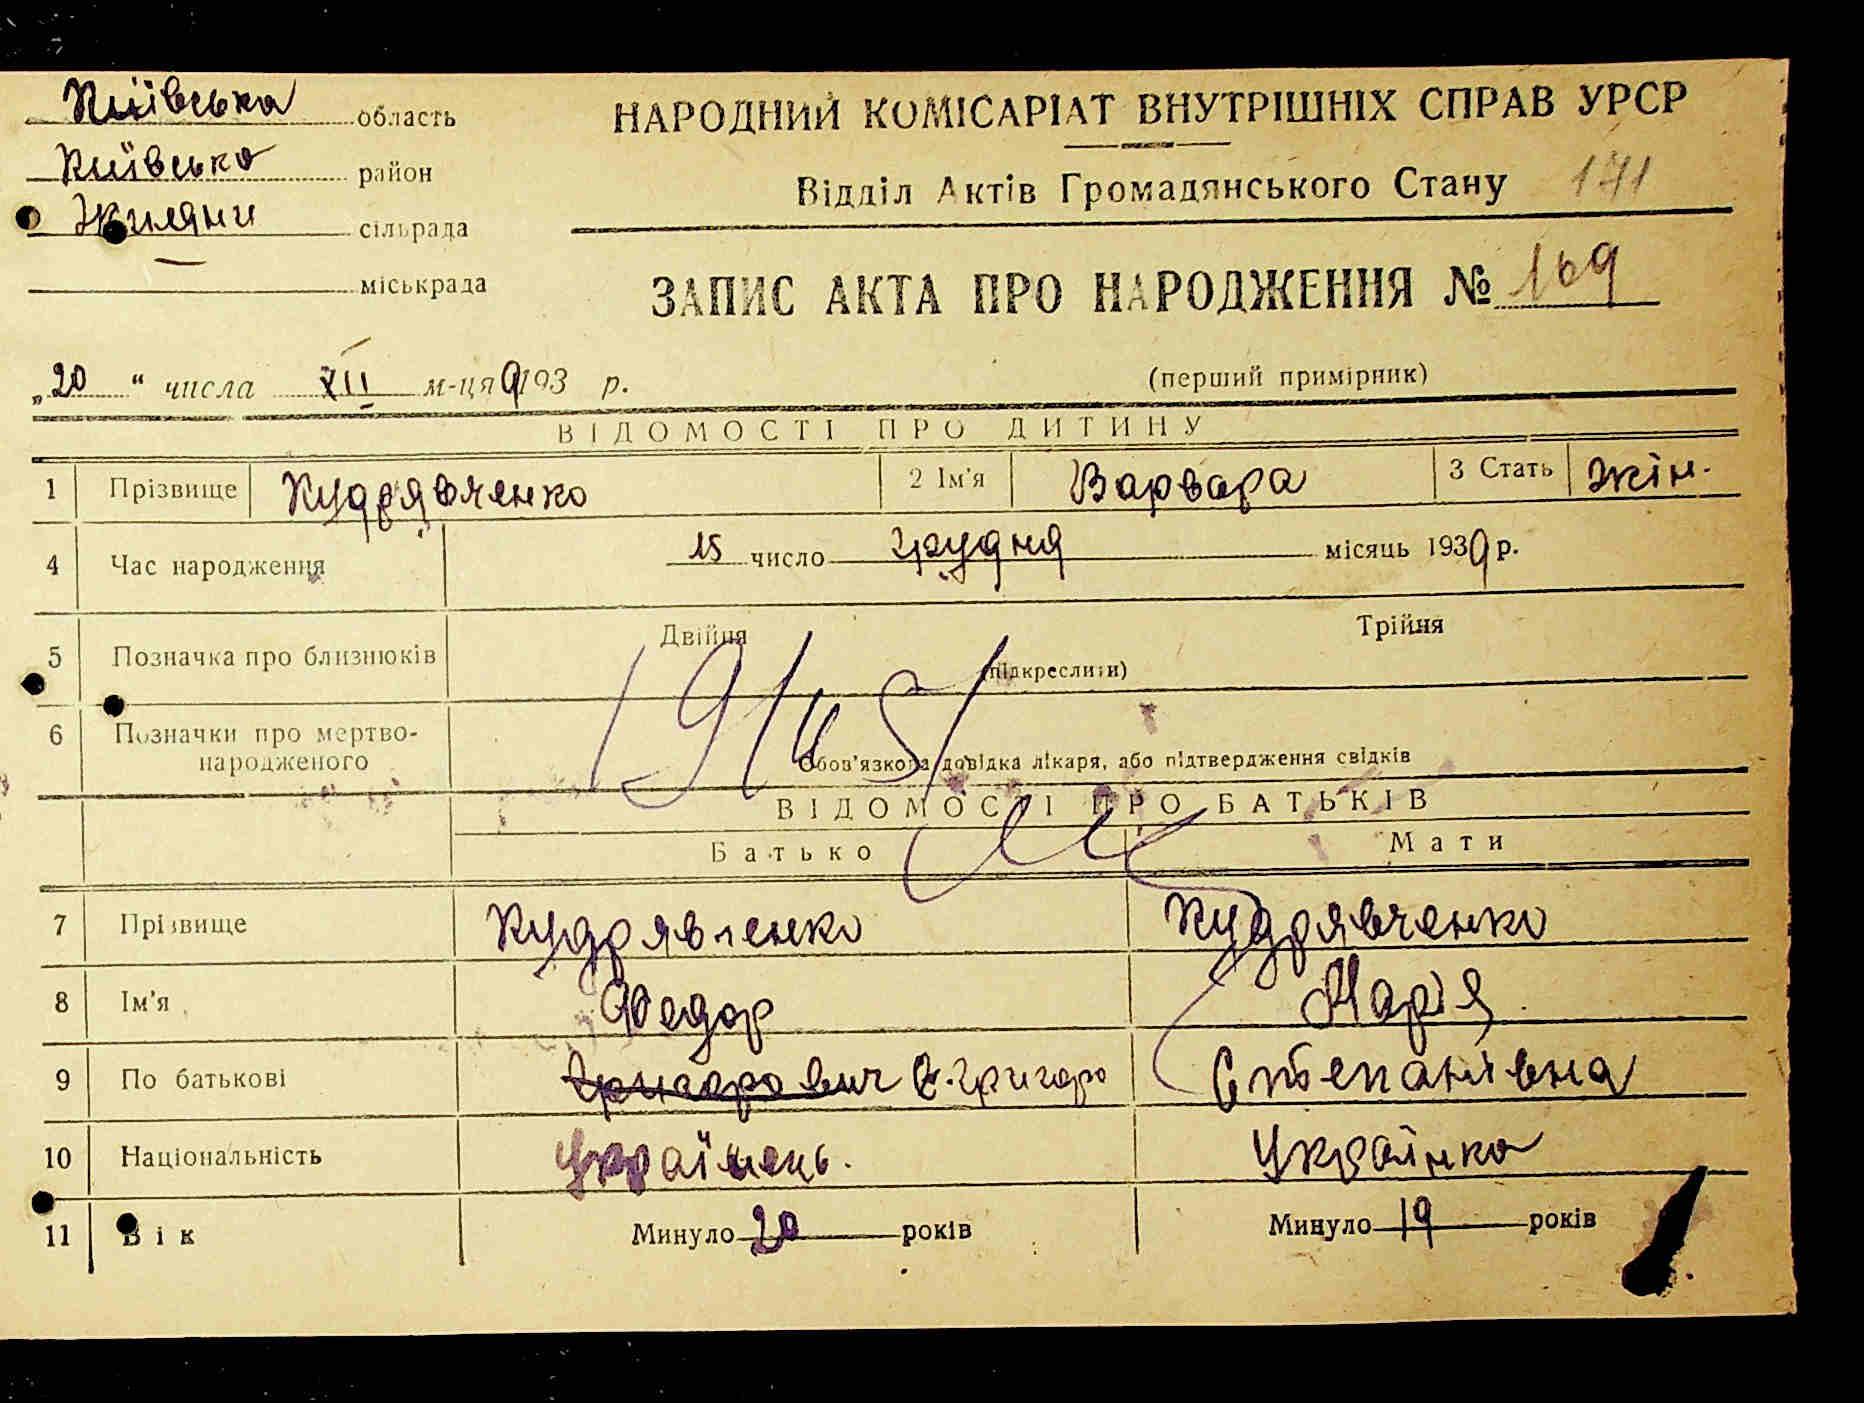 Київська область
НАРОДНИЙ КОМІСАРІАТ ВНУТРІШНІХ СПРАВ УРСР
Київсько район
Відділ Актів Громадянського Стану 171
Жиляни сільрада
міськрада
ЗАПИС АКТА ПРО НАРОДЖЕННЯ № 169
„20“ числа XII м-ця 9 193 р.
(перший примірник)
ВІДОМОСТІ ПРО ДИТИНУ
1 Прізвище Кудрявченко 2 Ім'я Варвара 3 Стать жін.
4 Час народження 15 число грудня місяць 1939 р.
5 Позначка про близнюків Двійня Трійня
(підкреслити)
6 Позначки про мертво-
народженого
Обов'язкова довідка лікаря, або підтвердження свідків
ВІДОМОСТІ ПРО БАТЬКІВ
Батько Мати
7 Прізвище Кудрявченко Кудрявченко
8 Ім'я Федор Мар'я
9 По батькові Григорович Григоро Степанівна
10 Національність Українець. Українка
11 Вік Минуло 20 років Минуло 19 років